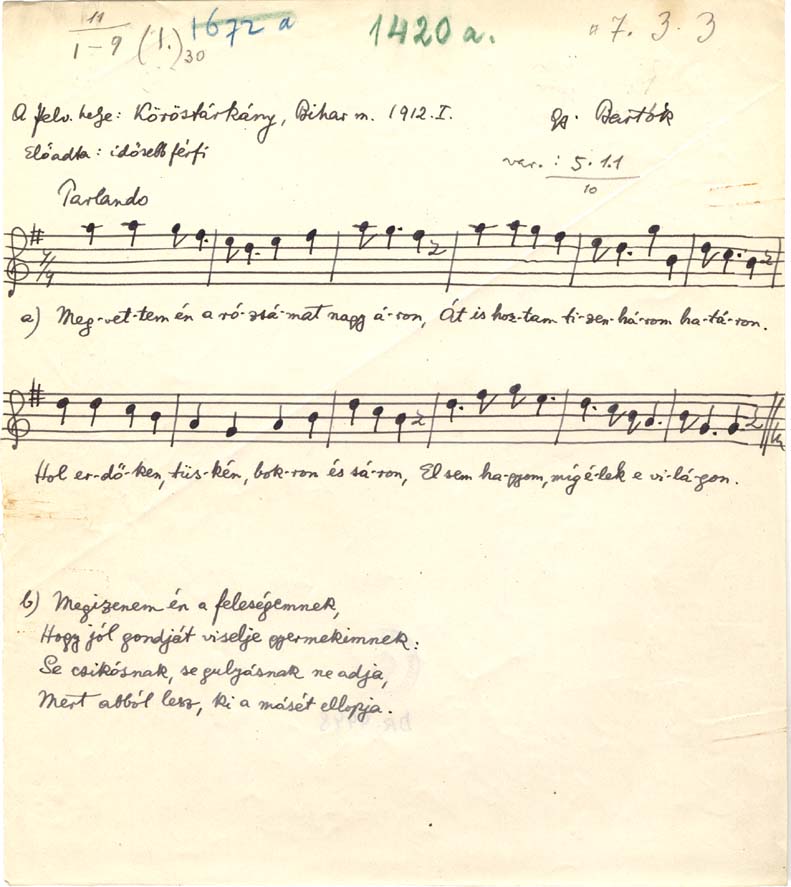 11
1-9 (1.)30 1672 a 1420 a. 7. 3. 3
A felv. helye: Köröstárkány, Bihar m. 1912. I. Gy. Bartók
Előadta: idősebb férfi var.: 5. 1.1
10
Parlando
a) Meg-vet-tem én a ró-zsá-mat nagy á-ron, Át is hoz-tam ti-zen-há-rom ha-tá-ron.
Hol er-dő-ken, tüs-kén, bok-ron és sá-ron, El sem ha-gyom, míg é-lek e vi-lá-gon.
b) Megizenem én a feleségemnek,
Hogy jól gondját viselje gyermekimnek:
Se csikósnak, se gulyásnak ne adja,
Mert abból lesz, ki a másét ellopja.